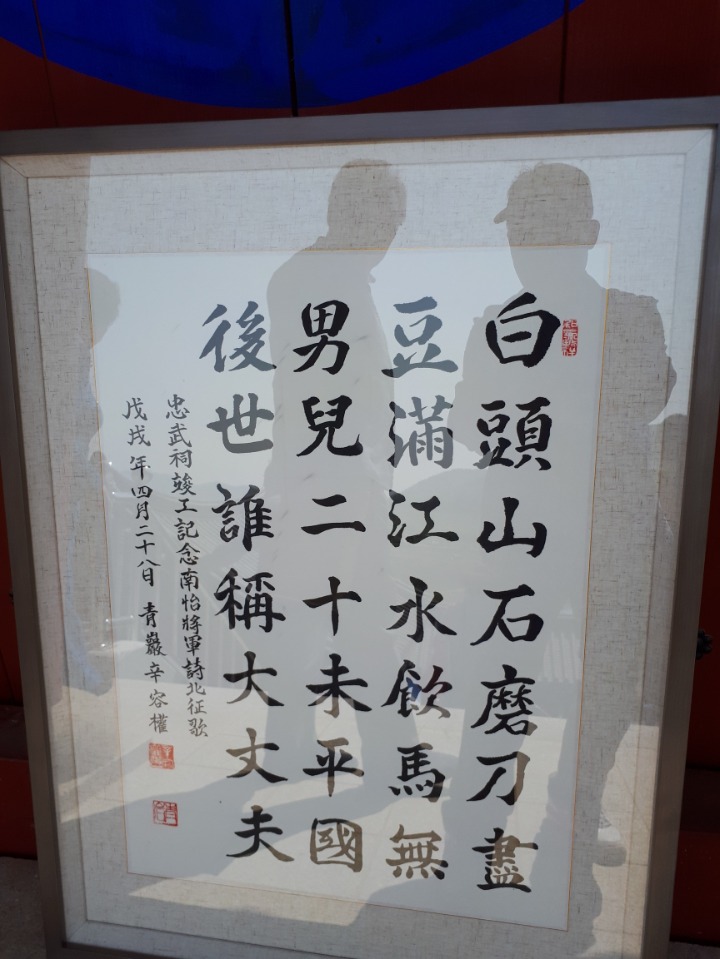 白頭山石磨刀盡
豆滿江水飮馬無
男兒二十未平國
後世誰稱大丈夫
忠武祠竣工記念南怡將軍詩北征歌
戊戌年四月二十八日 青巖辛容權